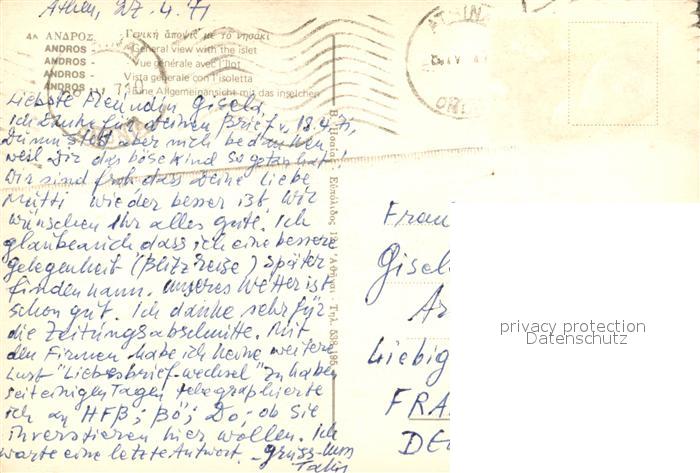 Athen, 27.4.71
4Α ΑΝΔΡΟΣ. Γενική ἄποψις με τό νησάκι
ANDROS - General view with the islet
ANDROS - Vue générale avec l'îlot
ANDROS - Vista generale con l'isoletta
ANDROS - Eine Allgemeinansicht mit das inselchen
Liebste Freundin Gisela,
Ich danke für deinen Brief v. 18.4.71,
Du musst aber mich bedanken
weil Dir das böse Kind so getan hat
Wir sind froh dass Deine liebe
Mutti wieder besser ist. Wir
wünschen Ihr alles gute. Ich
glaube auch dass ich eine bessere
gelegenheit (Blitzreise) später
finden kann. unseres Wetter ist
schon gut. Ich danke sehr für
die Zeitungsabschnitte. Mit
den Firmen habe ich keine weitere
Lust "Liebesbrief-wechsel" zu haben
seit einigen Tagen telegraphierte
ich an HFB; BÖ; Do, ob sie
investieren hier wollen. Ich
warte eine letzte Antwort. Gruss-kuss
Takis
Εὐπόλιδος Ἀθῆναι - Τηλ.
Frau
Gisel
Liebig
FRA
DE
privacy protection
Datenschutz